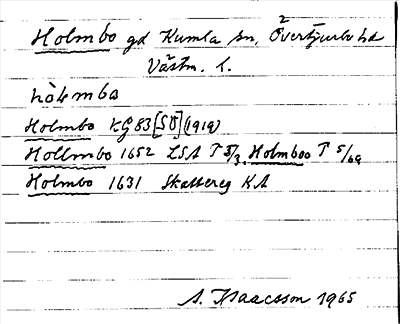 Holmbo gd Kumla sn, Övertjurbo hd
Västm. l.
hòlmba
Holmbo KG 83 [SÖ] (1919)
Hollmbo 1652 LSA T 5/3, Holmboo T 5/69
Holmbo 1631 Skattereg KA
S. Isaacsson 1965